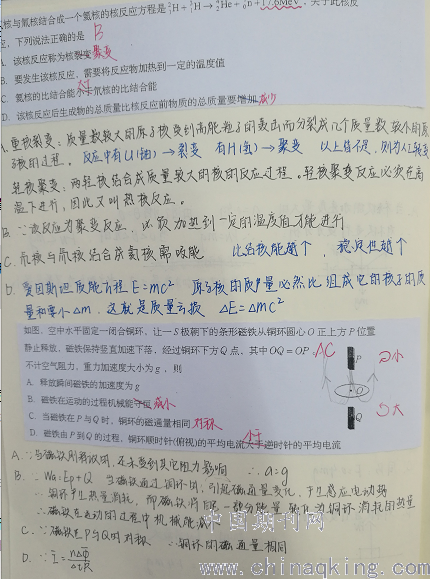 核与氚核结合成一个氦核的核反应方程是²₁H+³₁H→⁴₂He+¹₀n+17.6MeV，关于此核反
应，下列说法正确的是 B
A. 该核反应称为核裂变 聚变
B. 要发生该核反应，需要将反应物加热到一定的温度值
C. 氦核的比结合能小于氘核的比结合能 大于
D. 该核反应后生成物的总质量比核反应前物质的总质量要增加 减少
A. 重核裂变：质量数较大的原子核受到高能粒子的轰击而分裂成几个质量数较小的原
子核的过程。反应中有U(铀)→裂变 有H(氢)→聚变 以上皆不是，则为人工转变
轻核聚变：两轻核结合成质量较大的核的反应过程。轻核聚变反应必须在高
温下进行，因此又叫热核反应。
B. ∵该反应为聚变反应，必须加热到一定的温度值才能进行
C. 氘核与氚核结合成氦核需吸能 比结合能越个，稳定性越个
D. 爱因斯坦质能方程E=mc² 原子核的质量必然比组成它的核子的质
量和要小△m 这就是质量亏损 △E=△mc²
如图，空中水平固定一闭合铜环，让一S极朝下的条形磁铁从铜环圆心O正上方P位置
静止释放，磁铁保持竖直加速下落，经过铜环下方Q点，其中OQ=OP AC
不计空气阻力，重力加速度大小为g，则
A. 释放瞬间磁铁的加速度为g
B. 磁铁在运动的过程机械能守恒 减小
C. 当磁铁在P与Q时，铜环的磁通量相同 对称
D. 磁铁由P到Q的过程，铜环顺时针(俯视)的平均电流大于逆时针的平均电流 小于
P
O
Q
小
大
A. ∵当磁铁刚释放时，还未受到其它阻力影响 ∴a=g
B. ∵ Wa=Ep+Q 当磁铁通过铜环时，引起磁通量变化，产生感应电动势
∴铜环产生热量消耗，那磁铁消耗一部分能量转化为铜环消耗的热量
∴磁铁在运动的过程中机械能减小
C. ∵磁铁在P与Q时对称 ∴铜环的磁通量相同
D. ∵ Ī=n△Φ/△tR
中国期刊网
www.chinaqking.com